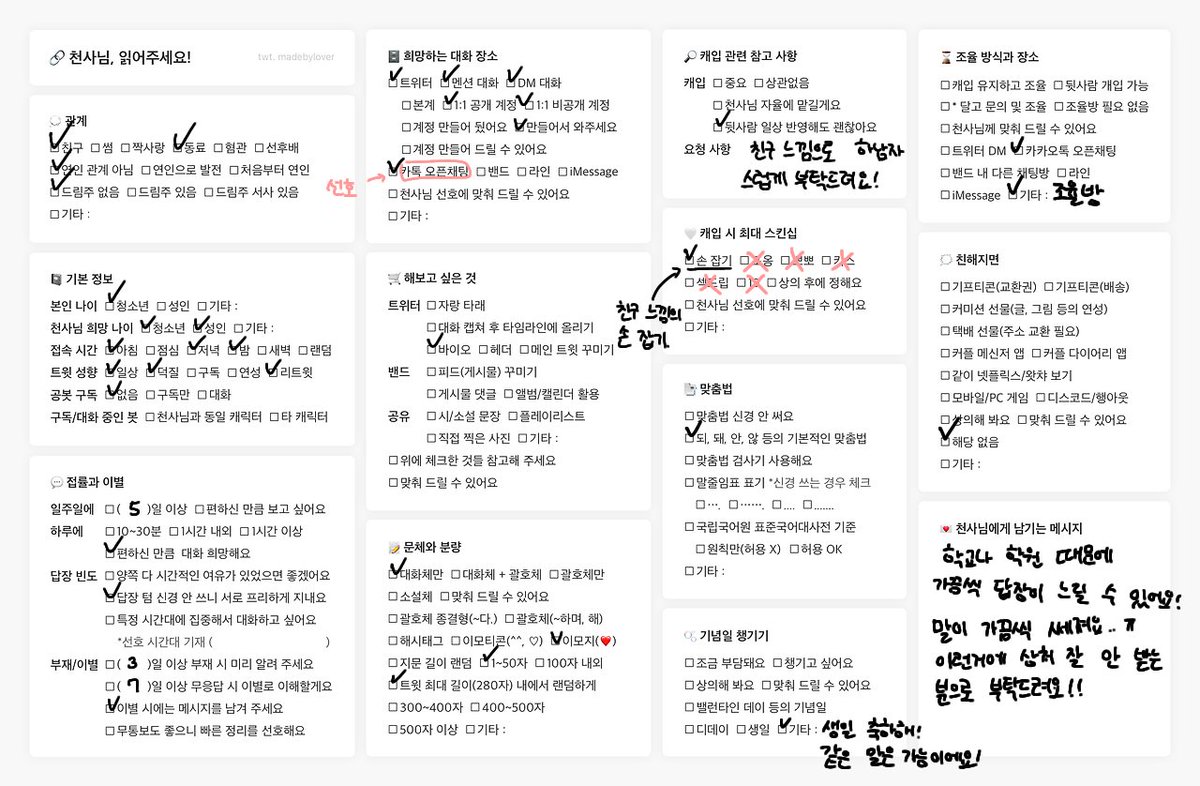 🔗 천사님, 읽어주세요!
twt. madebylover
💭 관계
☑친구 ☐썸 ☐짝사랑 ☑동료 ☐혐관 ☐선후배
☑연인 관계 아님 ☐연인으로 발전 ☐처음부터 연인
☑드림주 없음 ☐드림주 있음 ☐드림주 서사 있음
☐기타 :
기본 정보
본인 나이 ☑청소년 ☐성인 ☐기타 :
천사님 희망 나이 ☑청소년 ☑성인 ☐기타 :
접속 시간 ☑아침 ☐점심 ☑저녁 ☑밤 ☐새벽 ☐랜덤
트윗 성향 ☑일상 ☑덕질 ☐구독 ☐연성 ☑리트윗
공봇 구독 ☑없음 ☐구독만 ☐대화
구독/대화 중인 봇 ☐천사님과 동일 캐릭터 ☐타 캐릭터
💬 접률과 이별
일주일에 ☐( 5 )일 이상 ☐편하신 만큼 보고 싶어요
하루에 ☐10~30분 ☐1시간 내외 ☐1시간 이상
☑편하신 만큼 대화 희망해요
답장 빈도 ☐양쪽 다 시간적인 여유가 있었으면 좋겠어요
☑답장 텀 신경 안 쓰니 서로 프리하게 지내요
☐특정 시간대에 집중해서 대화하고 싶어요
*선호 시간대 기재 ( )
부재/이별 ☐( 3 )일 이상 부재 시 미리 알려 주세요
☐( 7 )일 이상 무응답 시 이별로 이해할게요
☑이별 시에는 메시지를 남겨 주세요
☐무통보도 좋으니 빠른 정리를 선호해요
🗄️ 희망하는 대화 장소
☑트위터 ☑멘션 대화 ☑DM 대화
☐본계 ☑1:1 공개 계정 ☑1:1 비공개 계정
☐계정 만들어 뒀어요 ☑만들어서 와주세요
☐계정 만들어 드릴 수 있어요
선호 → ☑카톡 오픈채팅 ☐밴드 ☐라인 ☐iMessage
☐천사님 선호에 맞춰 드릴 수 있어요
☐기타 :
🛒 해보고 싶은 것
트위터 ☐자랑 타래
☐대화 캡쳐 후 타임라인에 올리기
☑바이오 ☐헤더 ☐메인 트윗 꾸미기
밴드 ☐피드(게시물) 꾸미기
☐게시물 댓글 ☐앨범/캘린더 활용
공유 ☐시/소설 문장 ☐플레이리스트
☐직접 찍은 사진 ☐기타 :
☐위에 체크한 것들 참고해 주세요
☐맞춰 드릴 수 있어요
📝 문체와 분량
☑대화체만 ☐대화체 + 괄호체 ☐괄호체만
☐소설체 ☐맞춰 드릴 수 있어요
☐괄호체 종결형(~다.) ☐괄호체(~하며, 해)
☐해시태그 ☐이모티콘(^^, ♡) ☑이모지(❤️)
☐지문 길이 랜덤 ☑1~50자 ☐100자 내외
☑트윗 최대 길이(280자) 내에서 랜덤하게
☐300~400자 ☐400~500자
☐500자 이상 ☐기타 :
🔎 캐입 관련 참고 사항
캐입 ☐중요 ☐상관없음
☐천사님 자율에 맡길게요
☑뒷사람 일상 반영해도 괜찮아요
요청 사항 친구 느낌으로 하남자
스럽게 부탁드려요!
🤍 캐입 시 최대 스킨십
☑손 잡기 ☐포옹 ☐뽀뽀 ☐키스
☐섹드립 ☐19 ☐상의 후에 정해요
☐천사님 선호에 맞춰 드릴 수 있어요
☐기타 :
친구 느낌의
손 잡기
맞춤법
☐맞춤법 신경 안 써요
☑되, 돼, 안, 않 등의 기본적인 맞춤법
☐맞춤법 검사기 사용해요
☐말줄임표 표기 *신경 쓰는 경우 체크
☐···. ☐······. ☐.... ☐.......
☐국립국어원 표준국어대사전 기준
☐원칙만(허용 X) ☐허용 OK
☐기타 :
기념일 챙기기
☐조금 부담돼요 ☐챙기고 싶어요
☐상의해 봐요 ☐맞춰 드릴 수 있어요
☐밸런타인 데이 등의 기념일
☐디데이 ☐생일 ☑기타 : 생일 축하해!
같은 말은 가능이에요!
⌛ 조율 방식과 장소
☐캐입 유지하고 조율 ☐뒷사람 개입 가능
☐* 달고 문의 및 조율 ☐조율방 필요 없음
☐천사님께 맞춰 드릴 수 있어요
☐트위터 DM ☑카카오톡 오픈채팅
☐밴드 내 다른 채팅방 ☐라인
☐iMessage ☑기타 : 조율방
💭 친해지면
☐기프티콘(교환권) ☐기프티콘(배송)
☐커미션 선물(글, 그림 등의 연성)
☐택배 선물(주소 교환 필요)
☐커플 메신저 앱 ☐커플 다이어리 앱
☐같이 넷플릭스/왓챠 보기
☐모바일/PC 게임 ☐디스코드/행아웃
☐상의해 봐요 ☐맞춰 드릴 수 있어요
☑해당 없음
☐기타 :
💌 천사님에게 남기는 메시지
학교나 학원 때문에
가끔씩 답장이 느릴 수 있어요!
말이 가끔씩 쎄져요..ㅠ
이런거에 상처 잘 안 받는
분으로 부탁드려요!!